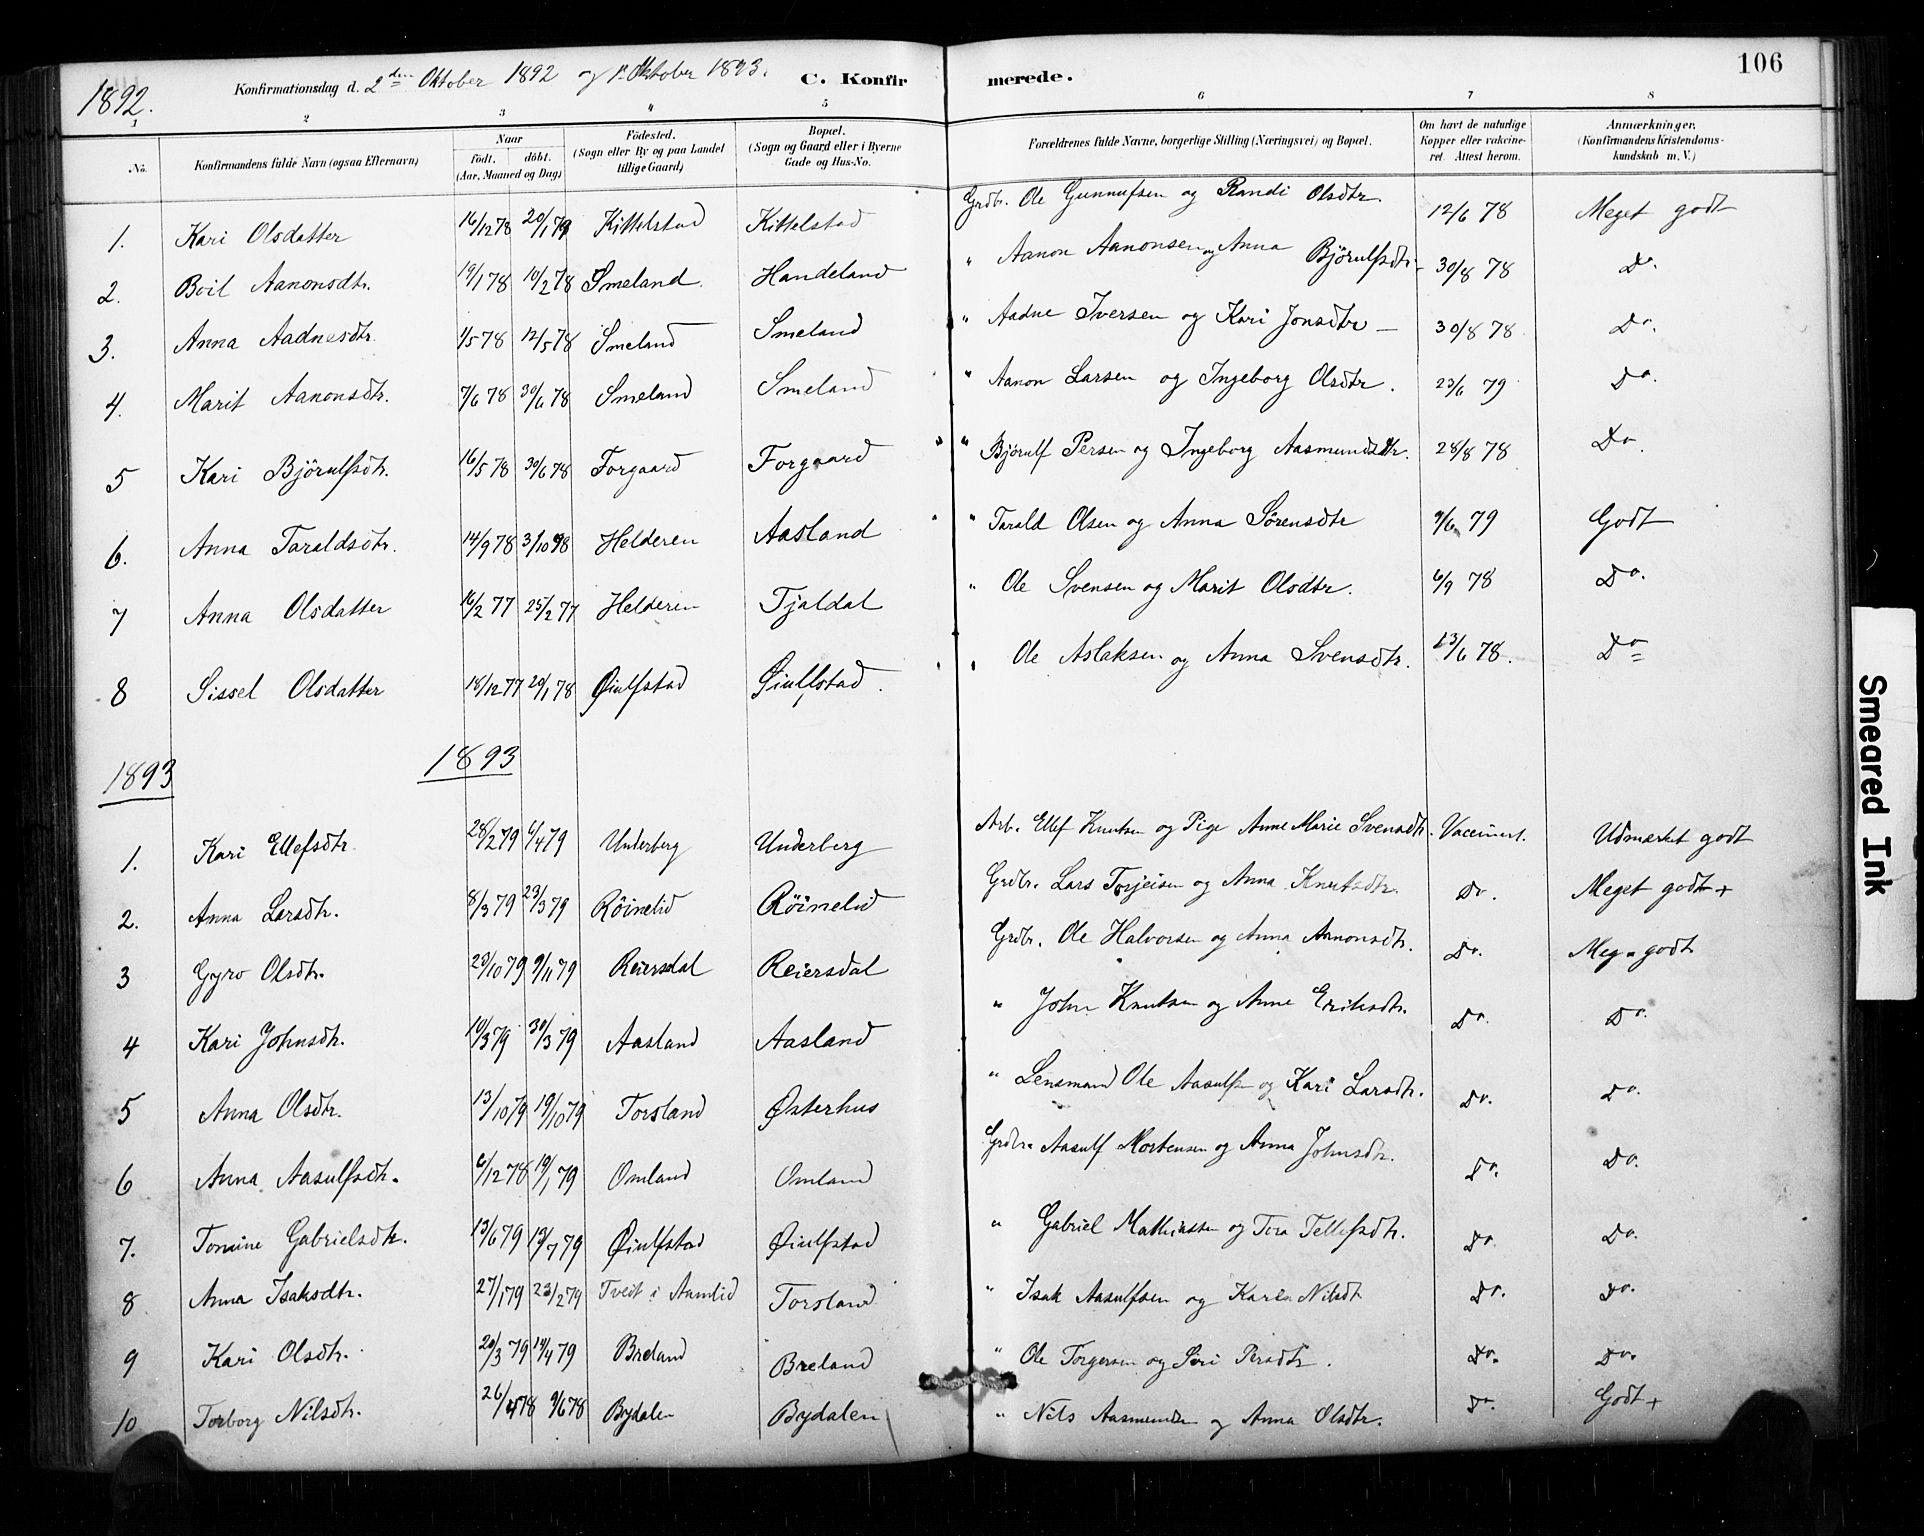 1892.
Konfirmationsdag d. 2den Oktober 1892 og 1 Oktober 1893.
C. Konfirmerede.
106
1 2 3 4 5 6 7 8
No.
Konfirmandens fulde Navn (ogsaa Efternavn)
Naar
födt. döbt.
(Aar, Maaned og Dag)
Födested.
(Sogn eller By og paa Landet
tillige Gaard)
Bopæl.
(Sogn og Gaard eller i Byerne
Gade og Hus-No.
Forældrenes fulde Navne, borgerlige Stilling (Næringsvei) og Bopæl.
Om havt de naturlige
Kopper eller vakcine-
ret. Attest herom.
Anmærkninger.
(Konfirmandens Kristendoms-
kundskab m. V.)
1. Kari Olsdatter 16/12 78 20/1 79 Kittelstad Kittelstad Grdbr. Ole Gunnufsen og Randi Olsdtr. 12/6 78 Meget godt
2. Boil Aanonsdtr. 19/1 78 10/2 78 Smeland. Handeland " Aanon Aanonsen og Anna Björulfsdtr. 30/8 78 Do.
3. Anna Aadnesdtr. 1/5 78 12/5 78 Smeland Smeland " Aadne Iversen og Kari Jonsdtr — 30/8 78 Do.
4. Marit Aanonsdtr. 7/6 78 30/6 78 Smeland Smeland " Aanon Larsen og Ingeborg Olsdtr. 23/6 79 Do.
5 Kari Björulfsdtr. 16/5 78 30/6 78 Forgaard Forgaard " " Bjørulf Persen og Ingeborg Aasmundsdtr. 28/8 78 Do.
6. Anna Taraldsdtr. 14/9 78 3/10 78 Helderen Aasland " " Tarald Olsen og Anna Sörensdtr 9/6 79 Godt
7 Anna Olsdatter 16/2 77 25/2 77 Helderen Tjaldal " Ole Svensen og Marit Olsdtr. 6/9 78 Do.
8 Sissel Olsdatter 18/12 77 20/1 78 Øiulfstad Øiulfstad. " " Ole Aslaksen og Anna Svensdtr. 13/6 78. Do
1893 1893
1. Kari Ellefsdtr. 28/2 79 6/4 79 Underberg Underberg Arb. Ellef Knutsen og Pige Anne Marie Svensdtr. Vaccinert. Udmerket godt
2. Anna Larsdtr. 8/3 79 23/3 79 Röinelid Röinelid Grdbr. Lars Torjeisen og Anna Knutsdtr. Do. Meget godt +
3 Gyro Olsdtr. 23/10 79 9/11 79 Reiersdal Reiersdal Grdbr. Ole Halvorsen og Anna Aanonsdtr. Do. Meg. godt
4 Kari Johnsdtr. 10/3 79 30/3 79 Aasland Aasland " John Knutsen og Anne Eriksdtr. Do. Do.
5 Anna Olsdtr. 13/10 79 19/10 79 Torsland Østerhus " Lensmand Ole Aasulfsen og Kari Larsdtr. Do. Do.
6 Anna Aasulfsdtr. 6/12 78 19/1 79 Omland Omland Grdbr. Aasulf Mortensen og Anna Johnsdtr. Do. Do.
7. Tomine Gabrielsdtr. 13/6 79 13/7 79 Øiulfstad Øiulfstad " Gabriel Mathiassen og Tora Tellefsdtr. Do. Do.
8 Anna Isaksdtr. 27/1 79 23/2 79 Tveit i Aamlid Torsland " Isak Aasulfsen og Karen Nilsdt Do. Do.
9 Kari Olsdtr. 20/3 79 14/4 79 Breland Breland " Ole Torgersen og Siri Persdtr. Do. Do.
10. Torborg Nilsdtr. 26/4 78 9/6 78 Bydalen Bydalen " Nils Aasmundsen og Anna Olsdtr. Do. Godt +
Smeared Ink